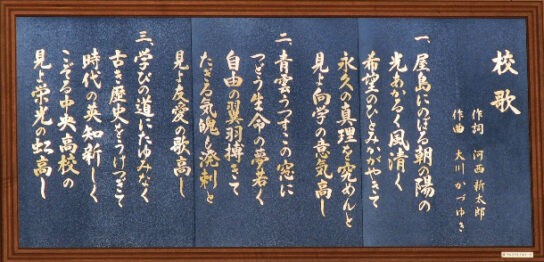 校歌
作詞 河西新太郎
作曲 大川かづゆき
一、屋島にのぼる朝の陽の
光あかるく風清く
希望のひとみかがやきて
永久の真理を究めんと
見よ向学の意気高し
二、青雲うつすこの窓に
つどう生命の夢若く
自由の翼羽搏きて
たぎる気魄も溌剌と
見よ友愛の歌高し
三、学びの道にたゆみなく
古き歴史をうけつぎて
時代の英知新しく
こぞる中央高校の
見よ栄光の虹高し